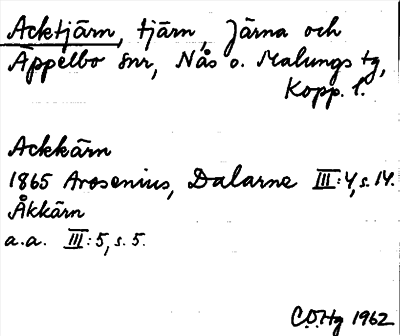 Acktjärn, tjärn, Järna och
Äppelbo snr, Nås o. Malungs tg,
Kopp. l.
Ackkärn
1865 Arosenius, Dalarne III:4, s. 14.
Åkkärn
a.a. III:5, s. 5.
C.O.Hg 1962